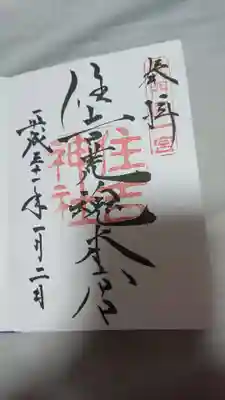 奉拝
住吉荒魂本宮
住吉神社
平成三十一年一月二日